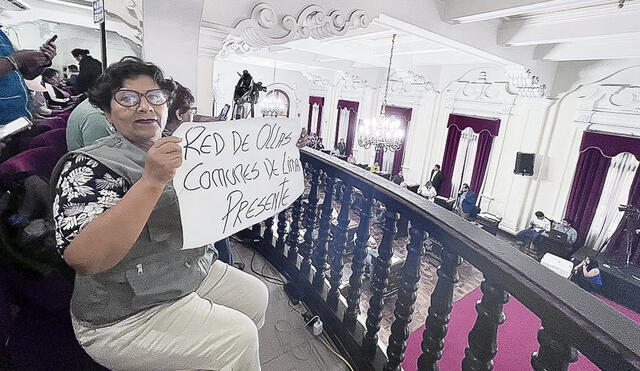 RED DE OLLAS
COMUNES DE LIMA
PRESENTE